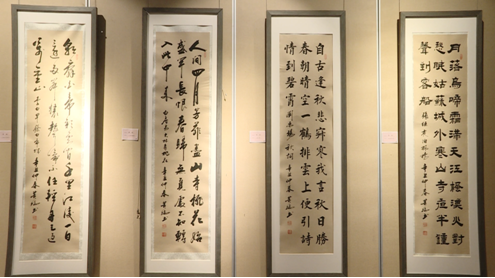 月落烏啼霜滿天江楓漁火對
愁眠姑蘇城外寒山寺夜半鐘
聲到客船
自古逢秋悲寂寥我言秋日勝
春朝晴空一鶴排雲上便引詩
情到碧霄
人間四月芳菲盡山寺桃花始
盛開長恨春歸無覓處不知轉
入此中來
朝辭白帝彩雲間千里江陵一日
還兩岸猿聲啼不住輕舟已過
萬重山